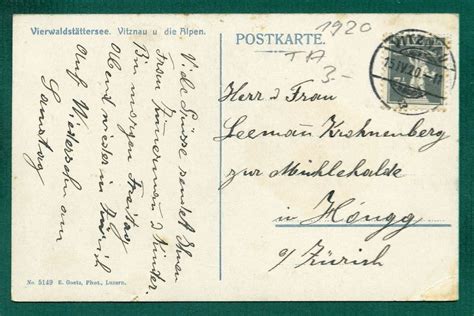 Vierwaldstättersee. Vitznau u. die Alpen.
POSTKARTE.
1920
3.-
VITZNAU
15.IV.20.-17
Viele Grüsse sendet Ihnen
Frau Zimmermann & Kinder.
Bin morgen Freitag
Abend wieder in Zürich
Auf Wiedersehn am
Samstag
Herr & Frau
Leemann Krähnenberg
zur Mühlehalde
in Höngg
b/Zürich
No. 5149 E. Goetz, Phot., Luzern.